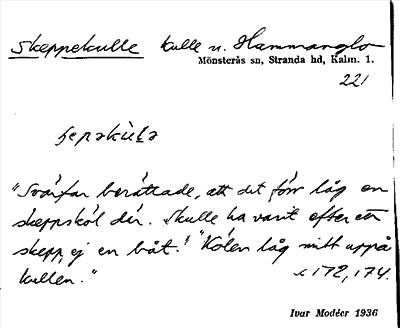 Skeppekulle kulle n. Hammarglo
Mönsterås sn, Stranda hd, Kalm. 1.
221
"Svärfar berättade, att det förr låg en
skeppsköl där. Skulle ha varit efter ett
skepp, ej en båt." "Kölen låg mitt uppå
kullen." s 172, 174.
Ivar Modéer 1936